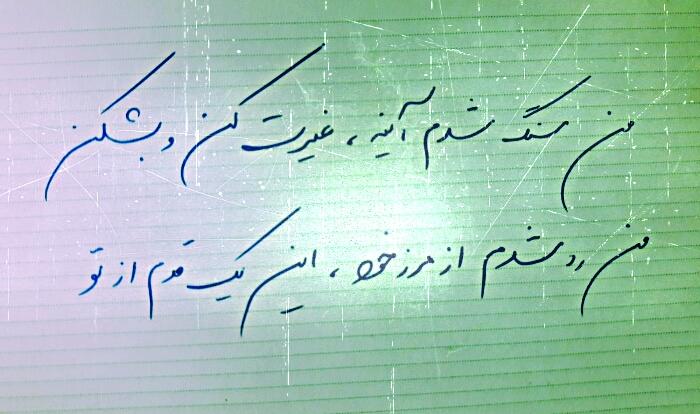 من سنگ شدم آینه ، غیرت کن و بشکن
من رد شدم از مرز خود ، این یک قدم از تو